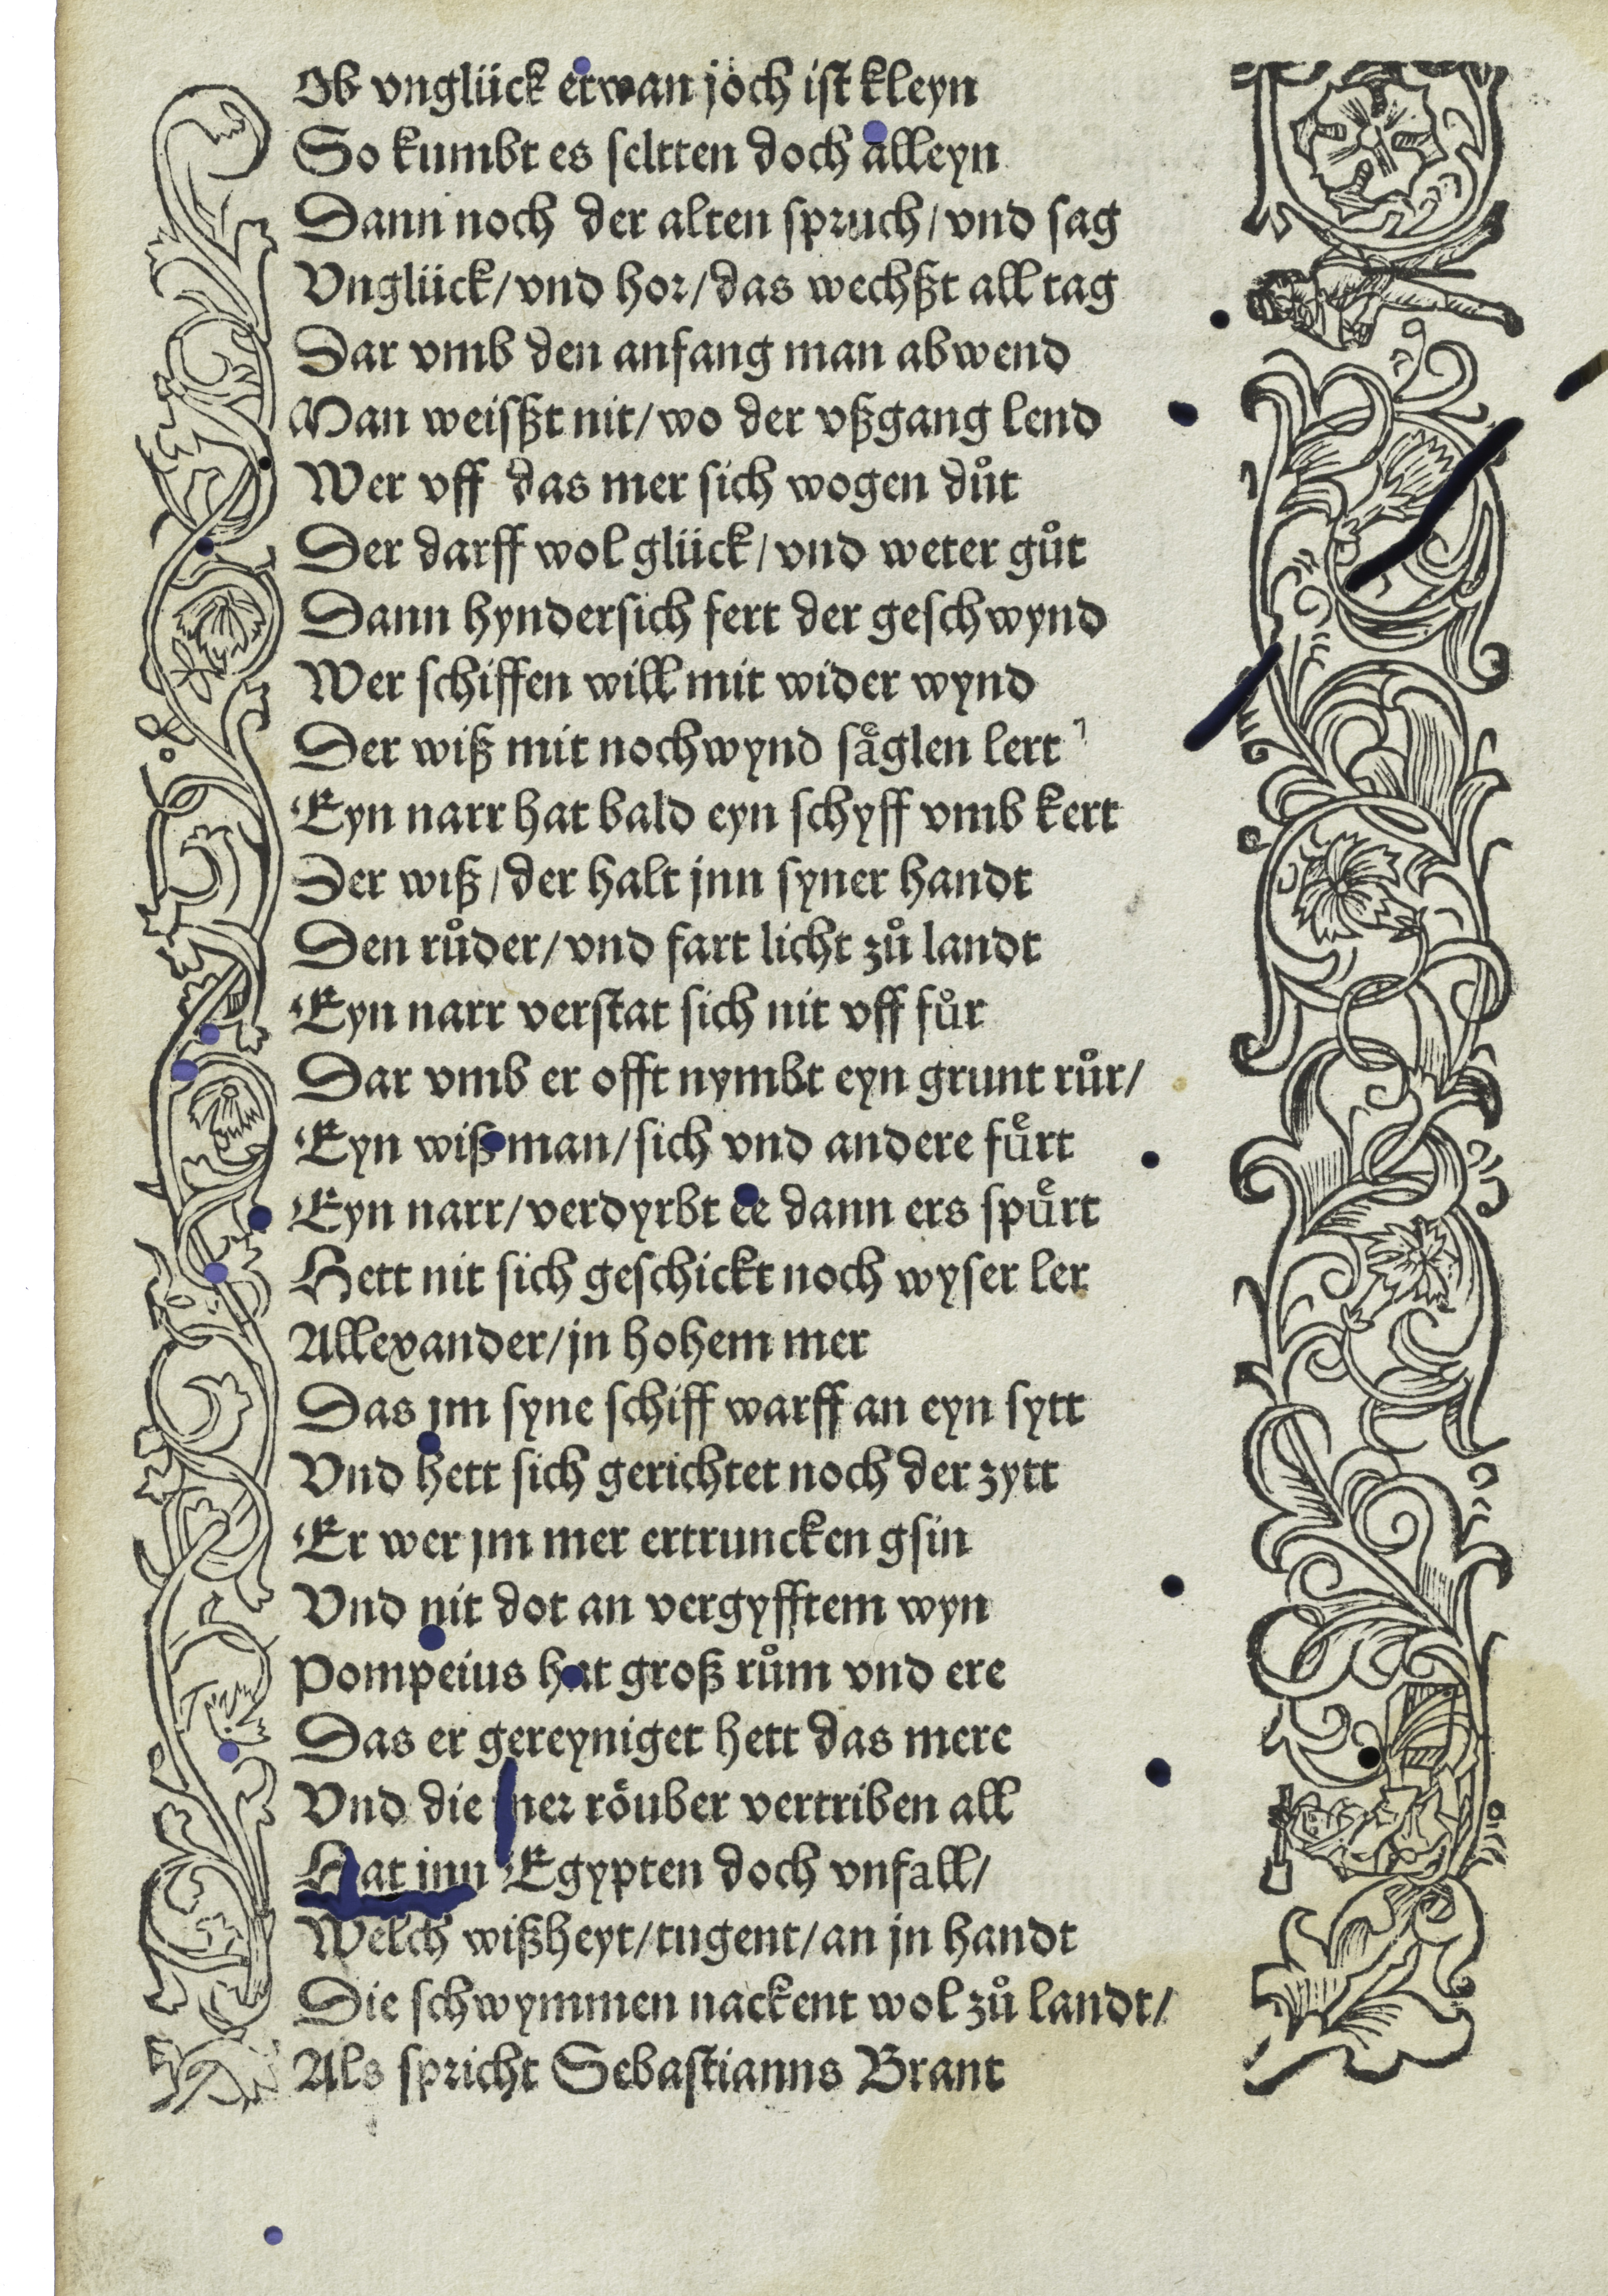 Ob vnglück etwan joch ist kleyn
So kumbt es seltten doch alleyn
Dann noch der alten spruch/vnd sag
Vnglück/vnd hor/das wechßt all tag
Dar vmb den anfang man abwend
Man weisßt nit/wo der vßgang lend
Wer vff das mer sich wogen důt
Der darff wol glück/vnd weter gůt
Dann hyndersich fert der geschwynd
Wer schiffen will mit wider wynd
Der wiß mit nochwynd säglen lert
Eyn narr hat bald eyn schyff vmb kert
Der wiß/der halt jnn syner handt
Den růder/vnd fart licht zů landt
Eyn narr verstat sich nit vff fůr
Dar vmb er offt nymbt eyn grunt růr/
Eyn wiß man/sich vnd andere fuͤrt
Eyn narr/verdyrbt ee dann ers spuͤrt
Hett nit sich geschickt noch wyser ler
Allexander/jn hohem mer
Das jm syne schiff warff an eyn sytt
Vnd hett sich gerichtet noch der zytt
Er wer jm mer ertruncken gsin
Vnd nit dot an vergyfftem wyn
Pompeius hat groß rům vnd ere
Das er gereyniget hett das mere
Vnd die mer röuber vertriben all
Hat jnn Egypten doch vnfall/
Welch wißheyt/tugent/an jn handt
Die schwymmen nackent wol zů landt/
Als spricht Sebastianns Brant